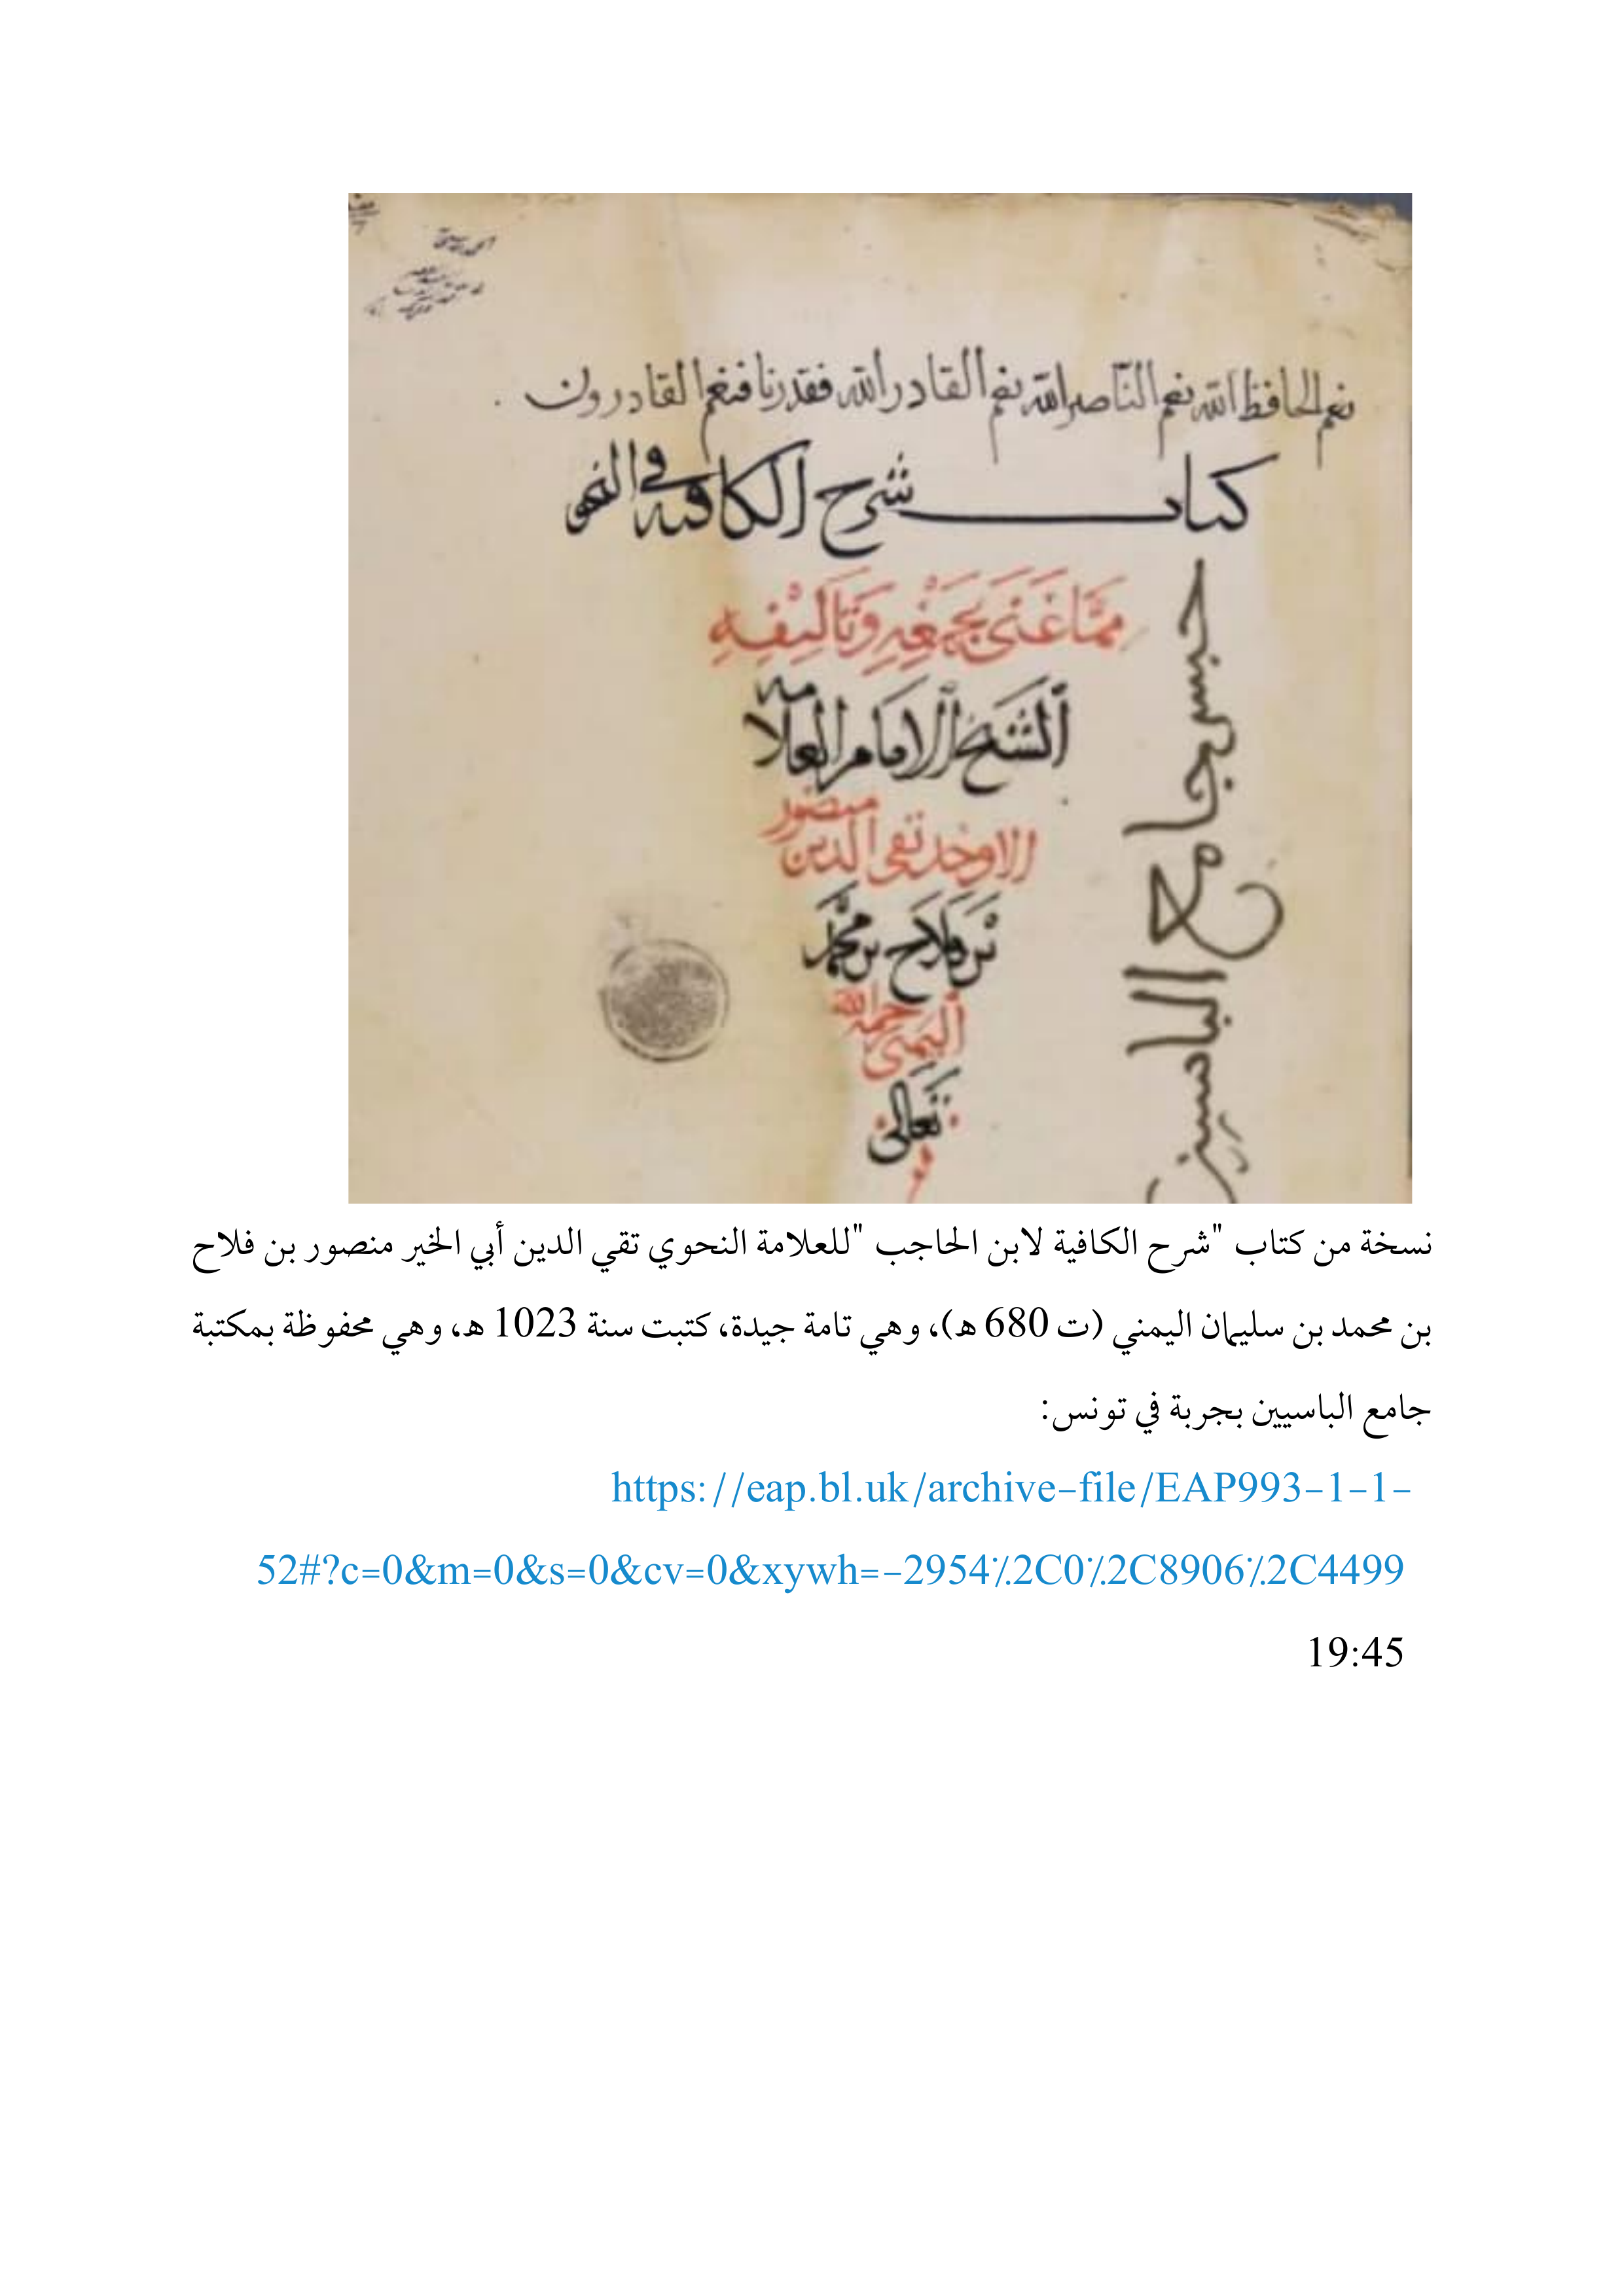 نعم الحافظ الله نعم الناصر الله نعم القادر الله فقدرنا فنعم القادرون
كتاب شرح الكافية في النحو
مما عنى بجمعه وتاليفه
الشيخ الامام العلامه
الاوحد تقي الدين منصور
بن فلاح بن محمد
اليمني رحمه الله
تعالى
حبس جامع الباسيين
نسخة من كتاب "شرح الكافية لابن الحاجب "للعلامة النحوي تقي الدين أبي الخير منصور بن فلاح
بن محمد بن سليمان اليمني (ت 680 هـ)، وهي تامة جيدة، كتبت سنة 1023 هـ، وهي محفوظة بمكتبة
جامع الباسيين بجربة في تونس:
https://eap.bl.uk/archive-file/EAP993-1-1-
52#?c=0&m=0&s=0&cv=0&xywh=-2954%2C0%2C8906%2C4499
19:45